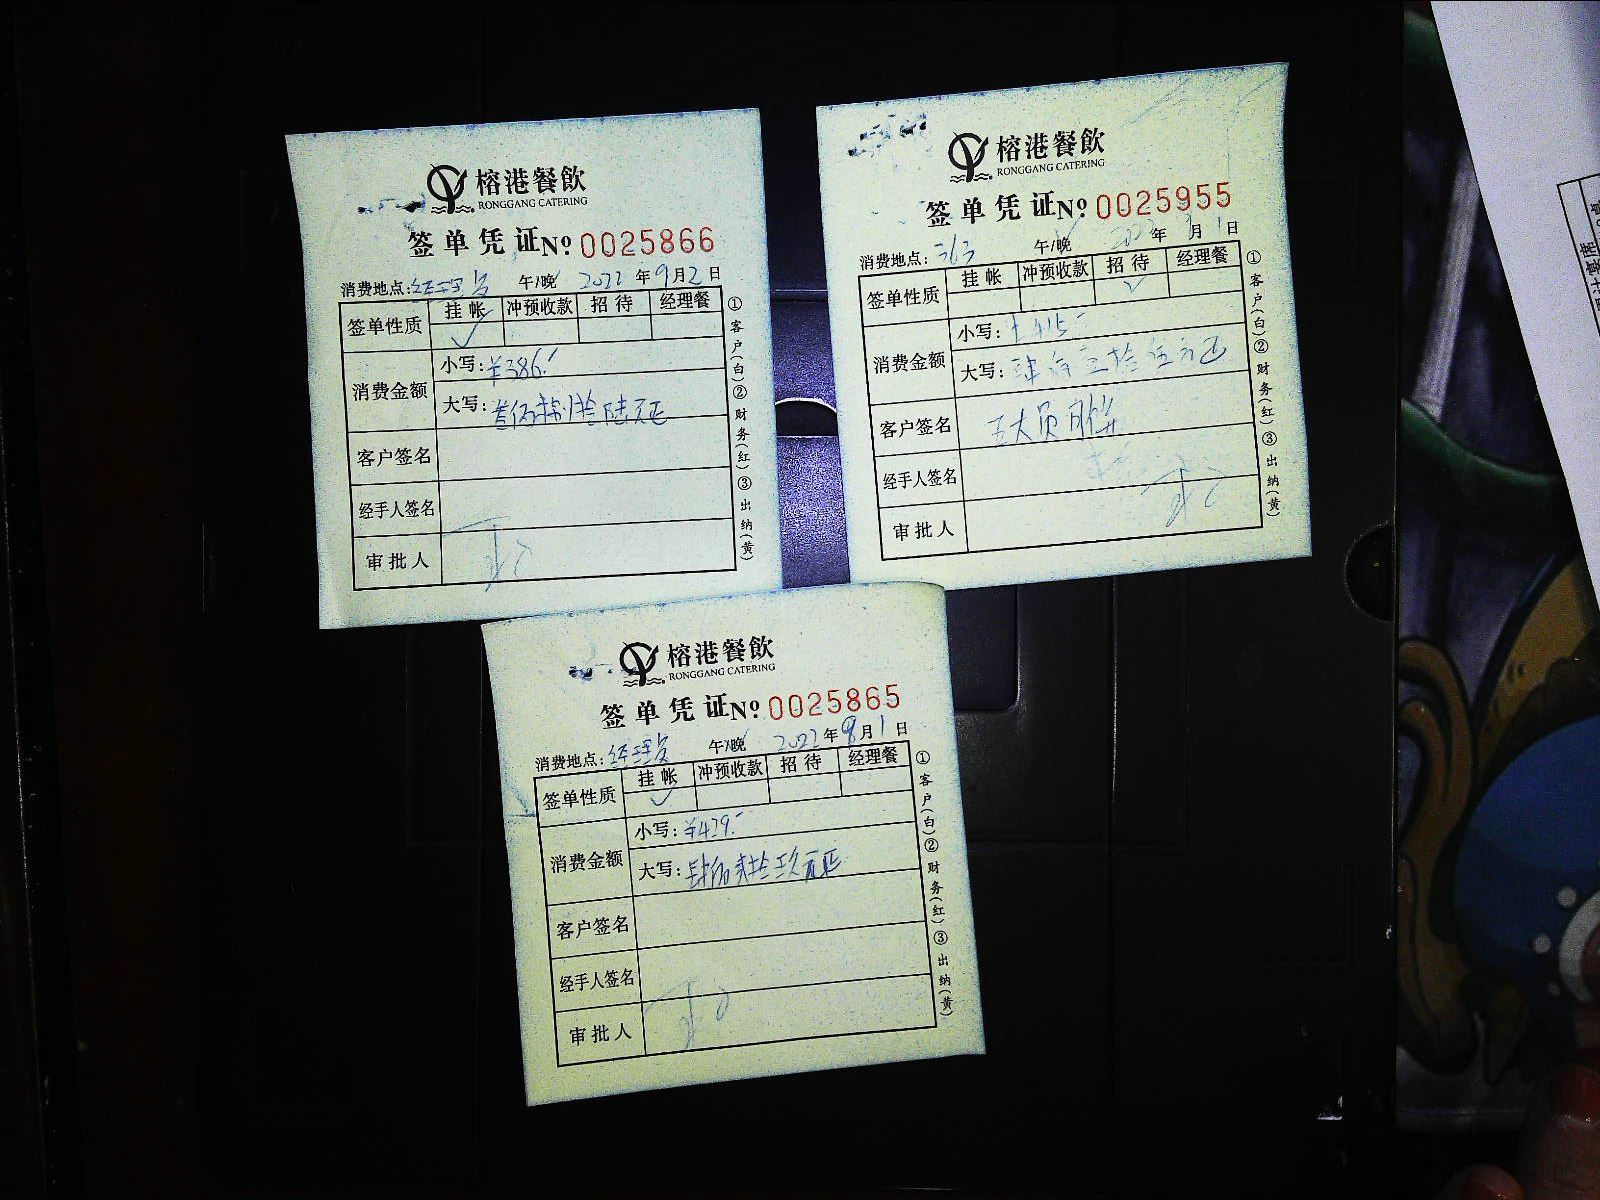 榕港餐飲
RONGGANG CATERING
签单凭证№ 0025866
消费地点: 午/晚 2022年9月2日
签单性质 挂帐 冲预收款 招待 经理餐
✓
消费金额 小写: ¥386.-
大写: 叁佰捌拾陆元正
客户签名
经手人签名
审批人
①客户(白)②财务(红)③出纳(黄)
榕港餐飲
RONGGANG CATERING
签单凭证№ 0025955
消费地点: 363 午/晚 年 月1日
签单性质 挂帐 冲预收款 招待 经理餐
✓
消费金额 小写:
大写: 拾伍元正
客户签名
经手人签名
审批人
①客户(白)②财务(红)③出纳(黄)
榕港餐飲
RONGGANG CATERING
签单凭证№ 0025865
消费地点: 午/晚 2022年9月1日
签单性质 挂帐 冲预收款 招待 经理餐
✓
消费金额 小写: ¥429.-
大写: 肆佰贰拾玖元正
客户签名
经手人签名
审批人
①客户(白)②财务(红)③出纳(黄)